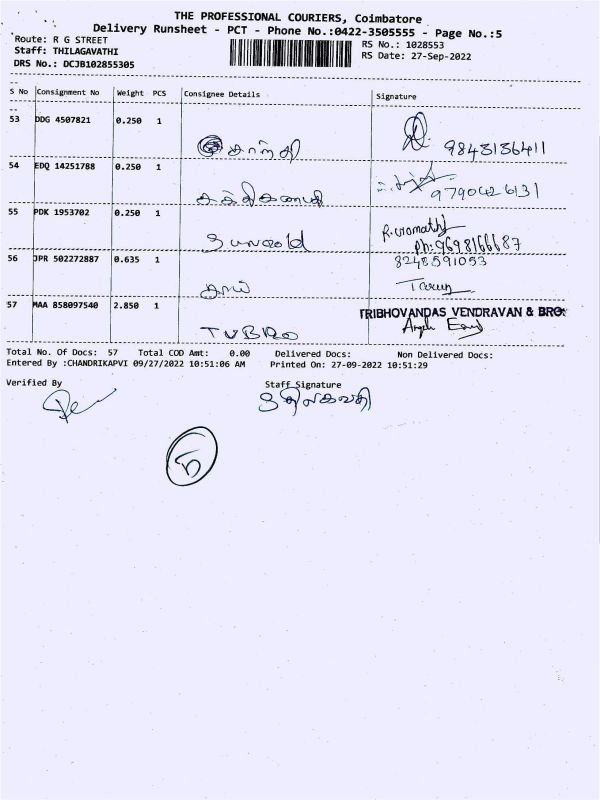 THE PROFESSIONAL COURIERS, Coimbatore
Delivery Runsheet - PCT - Phone No.:0422-3505555 - Page No.:5
Route: R G STREET
RS No.: 1028553
Staff: THILAGAVATHI
RS Date: 27-Sep-2022
DRS No.: DCJB102855305
S No Consignment No Weight PCS Consignee Details Signature
53 DDG 4507821 0.250 1
காந்தி 9843136411
54 EDQ 14251788 0.250 1
9790426131
55 PDK 1953702 0.250 1
R.
Ph: 9698166687
56 JPR 502272887 0.635 1 8248591053
தாய் Tarun
57 MAA 858097540 2.850 1 TRIBHOVANDAS VENDRAVAN & BRO.
TVBRO
Total No. Of Docs: 57 Total COD Amt: 0.00 Delivered Docs: Non Delivered Docs:
Entered By :CHANDRIKAPVI 09/27/2022 10:51:06 AM Printed On: 27-09-2022 10:51:29
Verified By Staff Signature